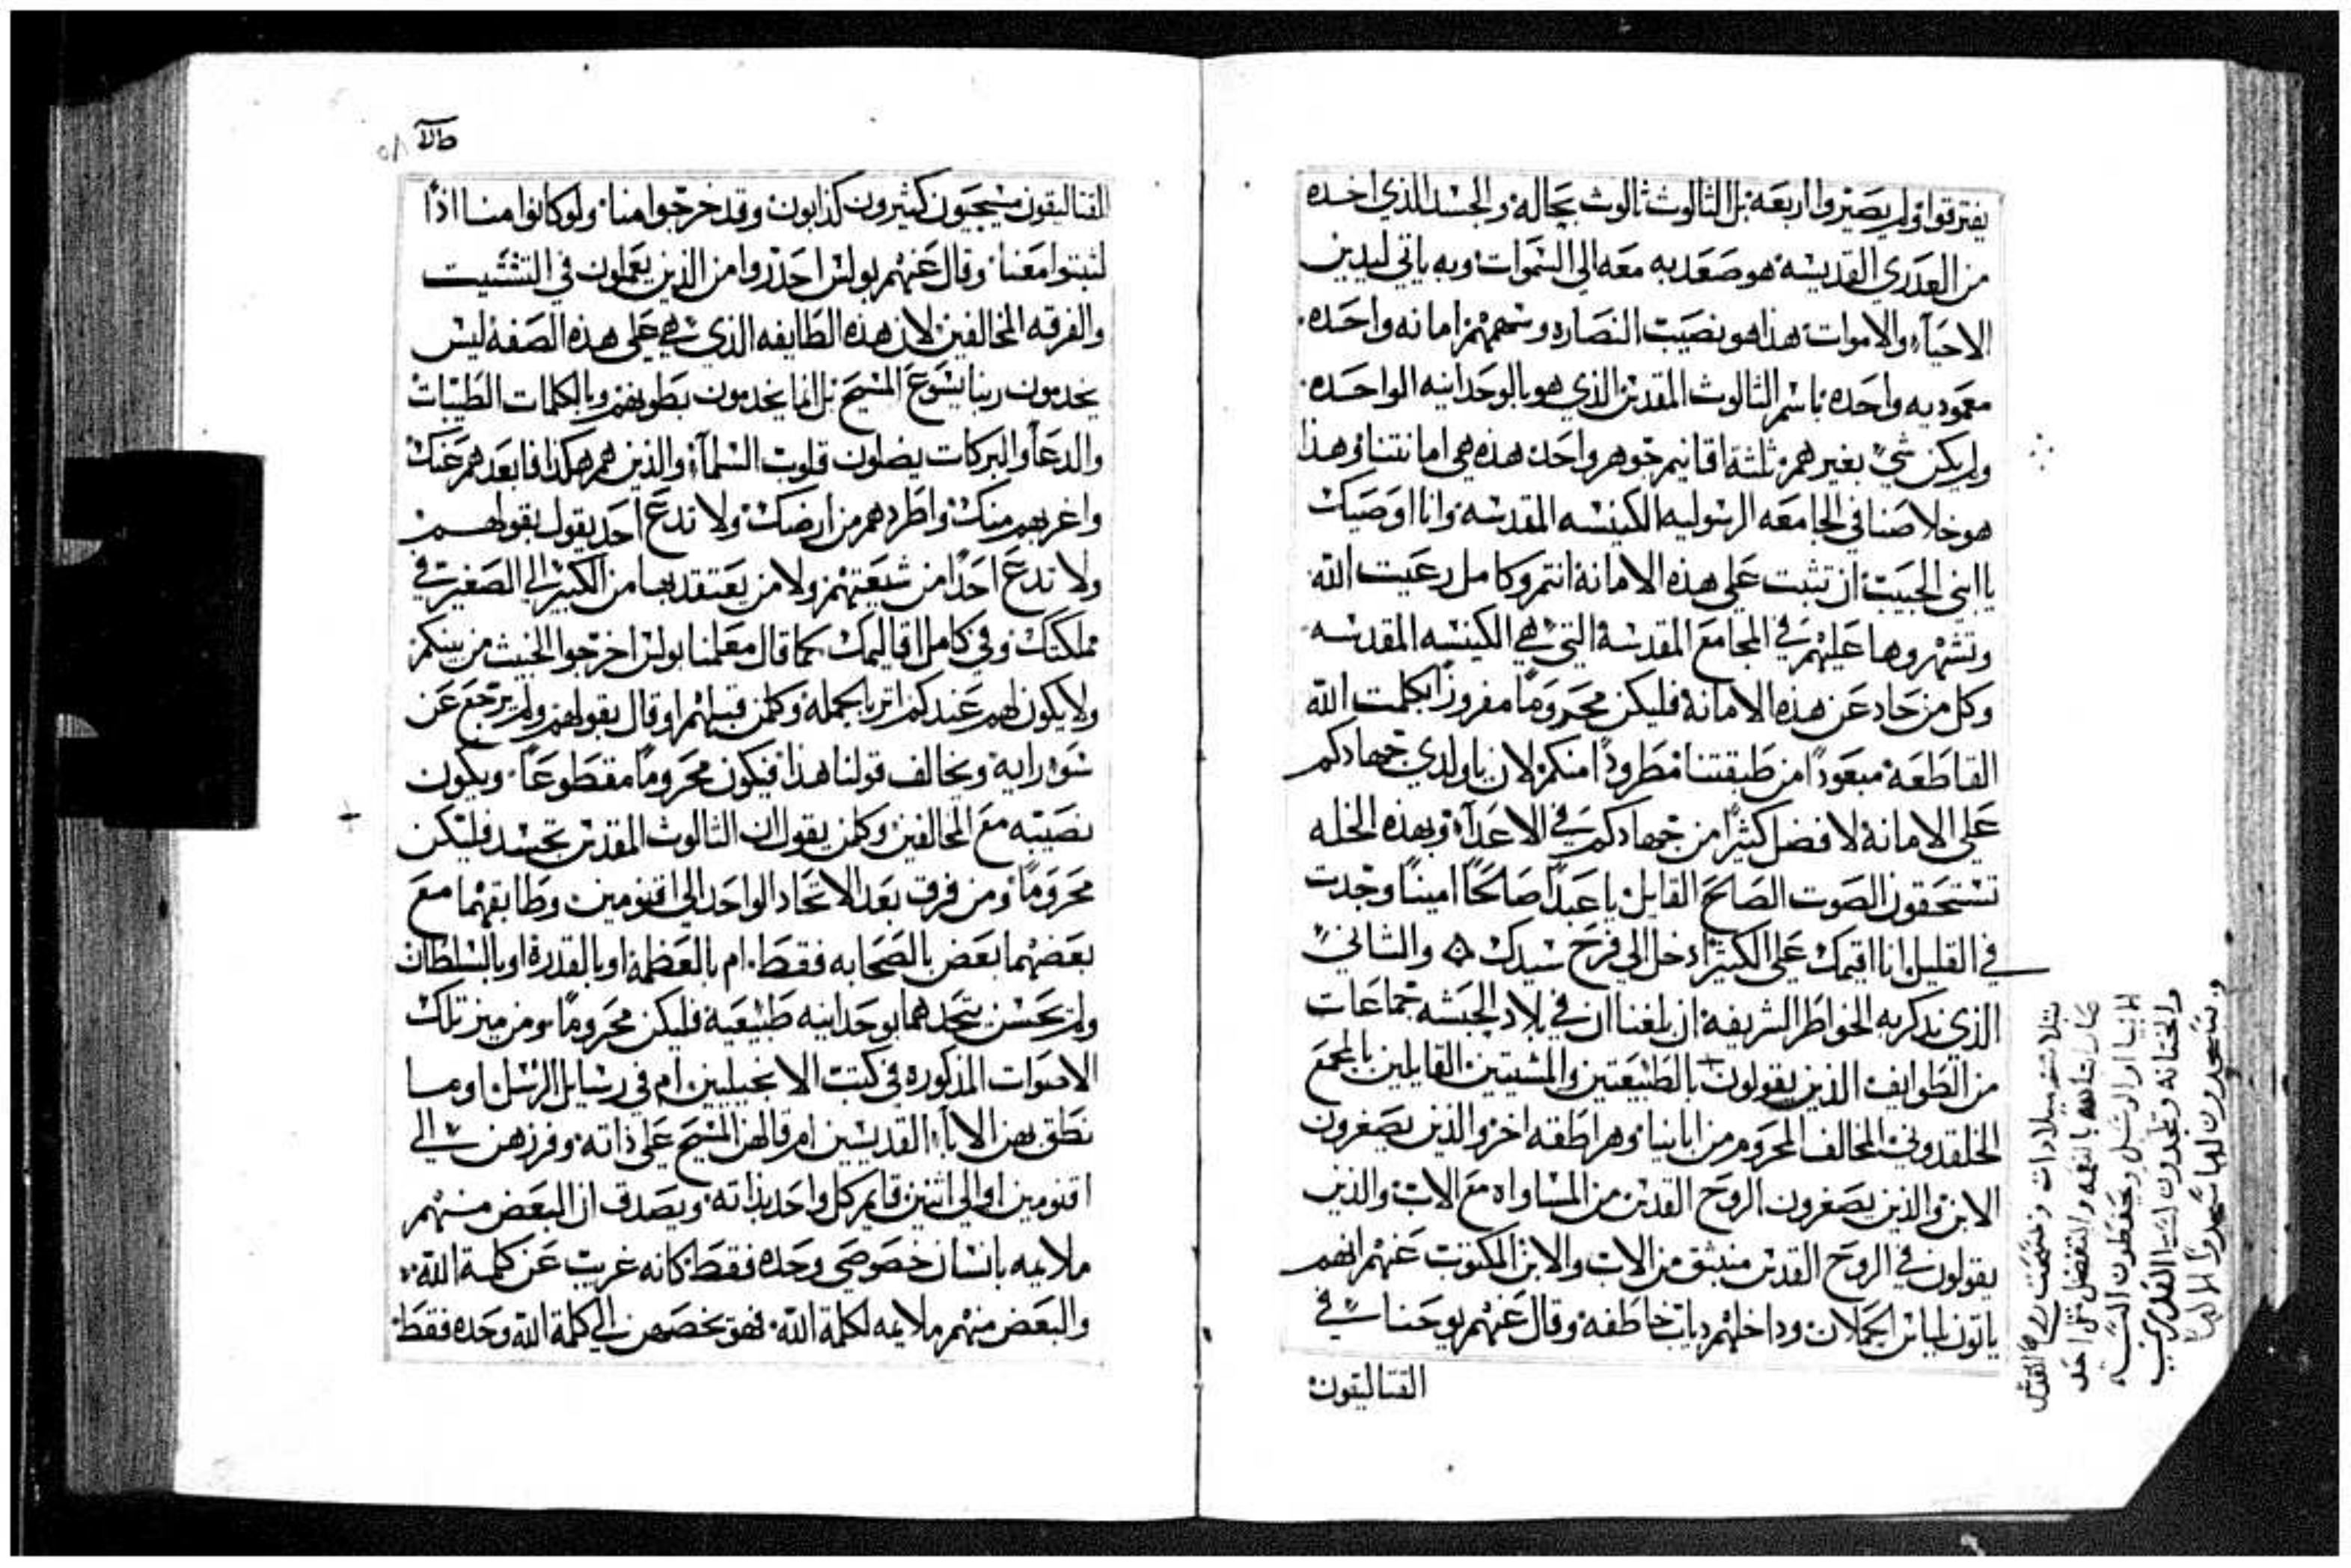 يفترقوا ولم يصيروا اربعه بل الثالوث ثالوث بحاله والجسد الذي اخده
من العدرى القديسه هو صعد به معه الى السموات وبه ياتي ليدين
الاحيآء والاموات هذا هو نصيب النصاره وسهمهم امانه واحده
معموديه واحده باسم الثالوث المقدس الذي هو بالوحدانيه الواحده
ولم يكن شي بغيرهم ثلثة اقانيم جوهر واحد هذه هي امانتنا وهذا
هو خلاصنا في الجامعه الرسوليه الكنيسه المقدسه وانا اوصيك
يا ابني الحبيب ان تثبت على هذه الامانة انتم وكامل رعيت الله
وتشهروها عليهم في المجامع المقدسة التي هي الكنيسه المقدسه
وكل من حاد عن هذه الامانة فليكن محروما مفروزا بكلمت الله
القاطعه مبعودا من طبقتنا مطرودا منكم لان يا ولدي جهادكم
على الامانة لافضل كثيرا من جهادكم في الاعدآء وبهذه الخله
تستحقون الصوت الصالح القايل يا عبدا صالحا امينا وجدت
في القليل وانا اقيمك على الكثير ادخل الى فرح سيدك والثاني
الذي ندكر به الخواطر الشريفة ان بلغنا ان في بلاد الحبشه جماعات
من الطوايف الذين يقولون بالطبيعتين والمشيتين القايلين بالمجمع
الخلقدوني المخالف المحروم من ابانيا وهراطقه اخر والذين يصغرون
الابن والذين يصغرون الروح القدس من المساواه مع الاب والذين
يقولون في الروح القدس منبثق من الاب والابن المكتوب عنهم انهم
ياتون لباس الحملان وداخلهم دياب خاطفه وقال عنهم يوحنا في
القتاليقون
القتاليقون مسيحيون كثيرون كدابون وقد خرجوا منا ولو كانوا منا اذًا
لثبتوا معنا وقال عنهم بولس احدروا من الذين يعملون في التشتيت
والفرقه المخالفين لان هذه الطايفه الذي هي على هذه الصفة ليس
يخدمون ربنا يسوع المسيح بل انما يخدمون بطونهم وبالكلمات الطيبات
والدعآ والبركات يضلون قلوب السلمآء والذين هم هكدا فابعدهم عنك
واغربهم منك واطردهم من ارضك ولا تدع احد يقول بقولهم
ولا تدع احدًا من شيعتهم ولا من يعتقد بها من الكبير الى الصغير في
مملكتك وفي كامل اقاليمك كما قال معلمنا بولس اخرجوا الخبيث من بينكم
ولا يكون لهم عندكم اثر بالجملة وكلمن قبلهم او قال بقولهم ولم يرجع عن
سو رايه ويخالف قولنا هذا فيكون محروما مقطوعًا ويكون
نصيبه مع المخالفين وكلمن يقول ان الثالوث المقدس تجسد فليكن
محروما ومن فرق بعد الاتحاد الواحد الى اقنومين وطابقهما مع
بعضهما بعض بالصحابه فقط ام بالعظمة او بالقدرة او بالسلطان
ولم يحسن يتحدهما بوحدانيه طبيعية فليكن محروما ومن ميز تلك
الاصوات المذكوره في كتب الانجيليين ام في رسايل الرسل او ما
نطق بهن الابآء القديسين ام قالهن المسيح على ذاته وفرزهن الى
اقنومين او الى اثنين قايم كل واحد بذاته ويصدق ان البعض منهم
ملايمه بانسان خصوصي وحده فقط كانه غريب عن كلمة الله
والبعض منهم ملايمه لكلمة الله فهو يخصهن الى كلمة الله وحده فقط